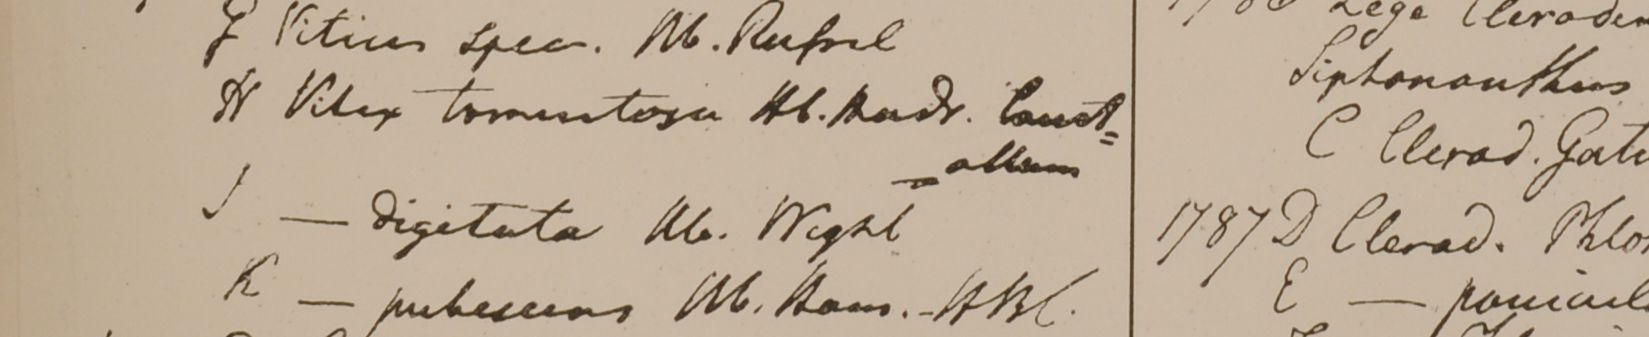 G Viticis spec. Hb. Russel
H Vitex tomentosa Hb. Madr.
J — digitata Hb. Wight
K — pubescens Hb. Ham. - HBC.
Lege Cleroden
Siphonanthus
C Clerod.
1787 D Clerod. Phlo
E — panicul